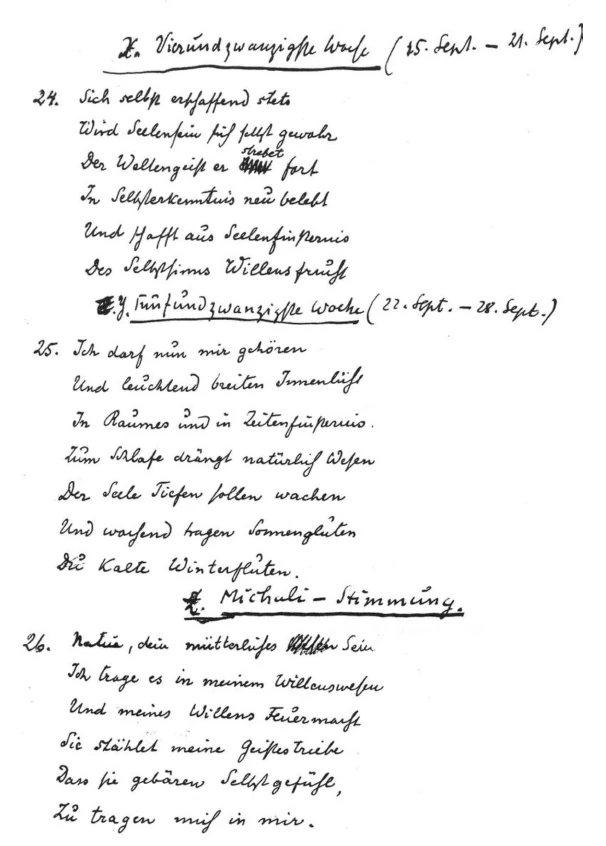 X. Vierundzwanzigste Woche (15. Sept. – 21. Sept.)
24. Sich selbst erschaffend stets
Wird Seelensein sich selbst gewahr
Der Weltengeist er strebet fort
In Selbsterkenntnis neu belebt
Und schafft aus Seelenfinsternis
Des Selbstsinns Willensfrucht
Y. Fünfundzwanzigste Woche (22. Sept. – 28. Sept.)
25. Ich darf nun mir gehören
Und leuchtend breiten Innenlicht
In Raumes und in Zeitenfinsternis.
Zum Schlafe drängt natürlich Wesen
Der Seele Tiefen sollen wachen
Und wachend tragen Sonnengluten
Die Kalte Winterfluten.
Z. Michaeli – Stimmung.
26. Natur, dein mütterliches Sein
Ich trage es in meinem Willenswesen
Und meines Willens Feuermacht
Sie stählet meine Geistestriebe
Dass sie gebären Selbstgefühl,
Zu tragen mich in mir.